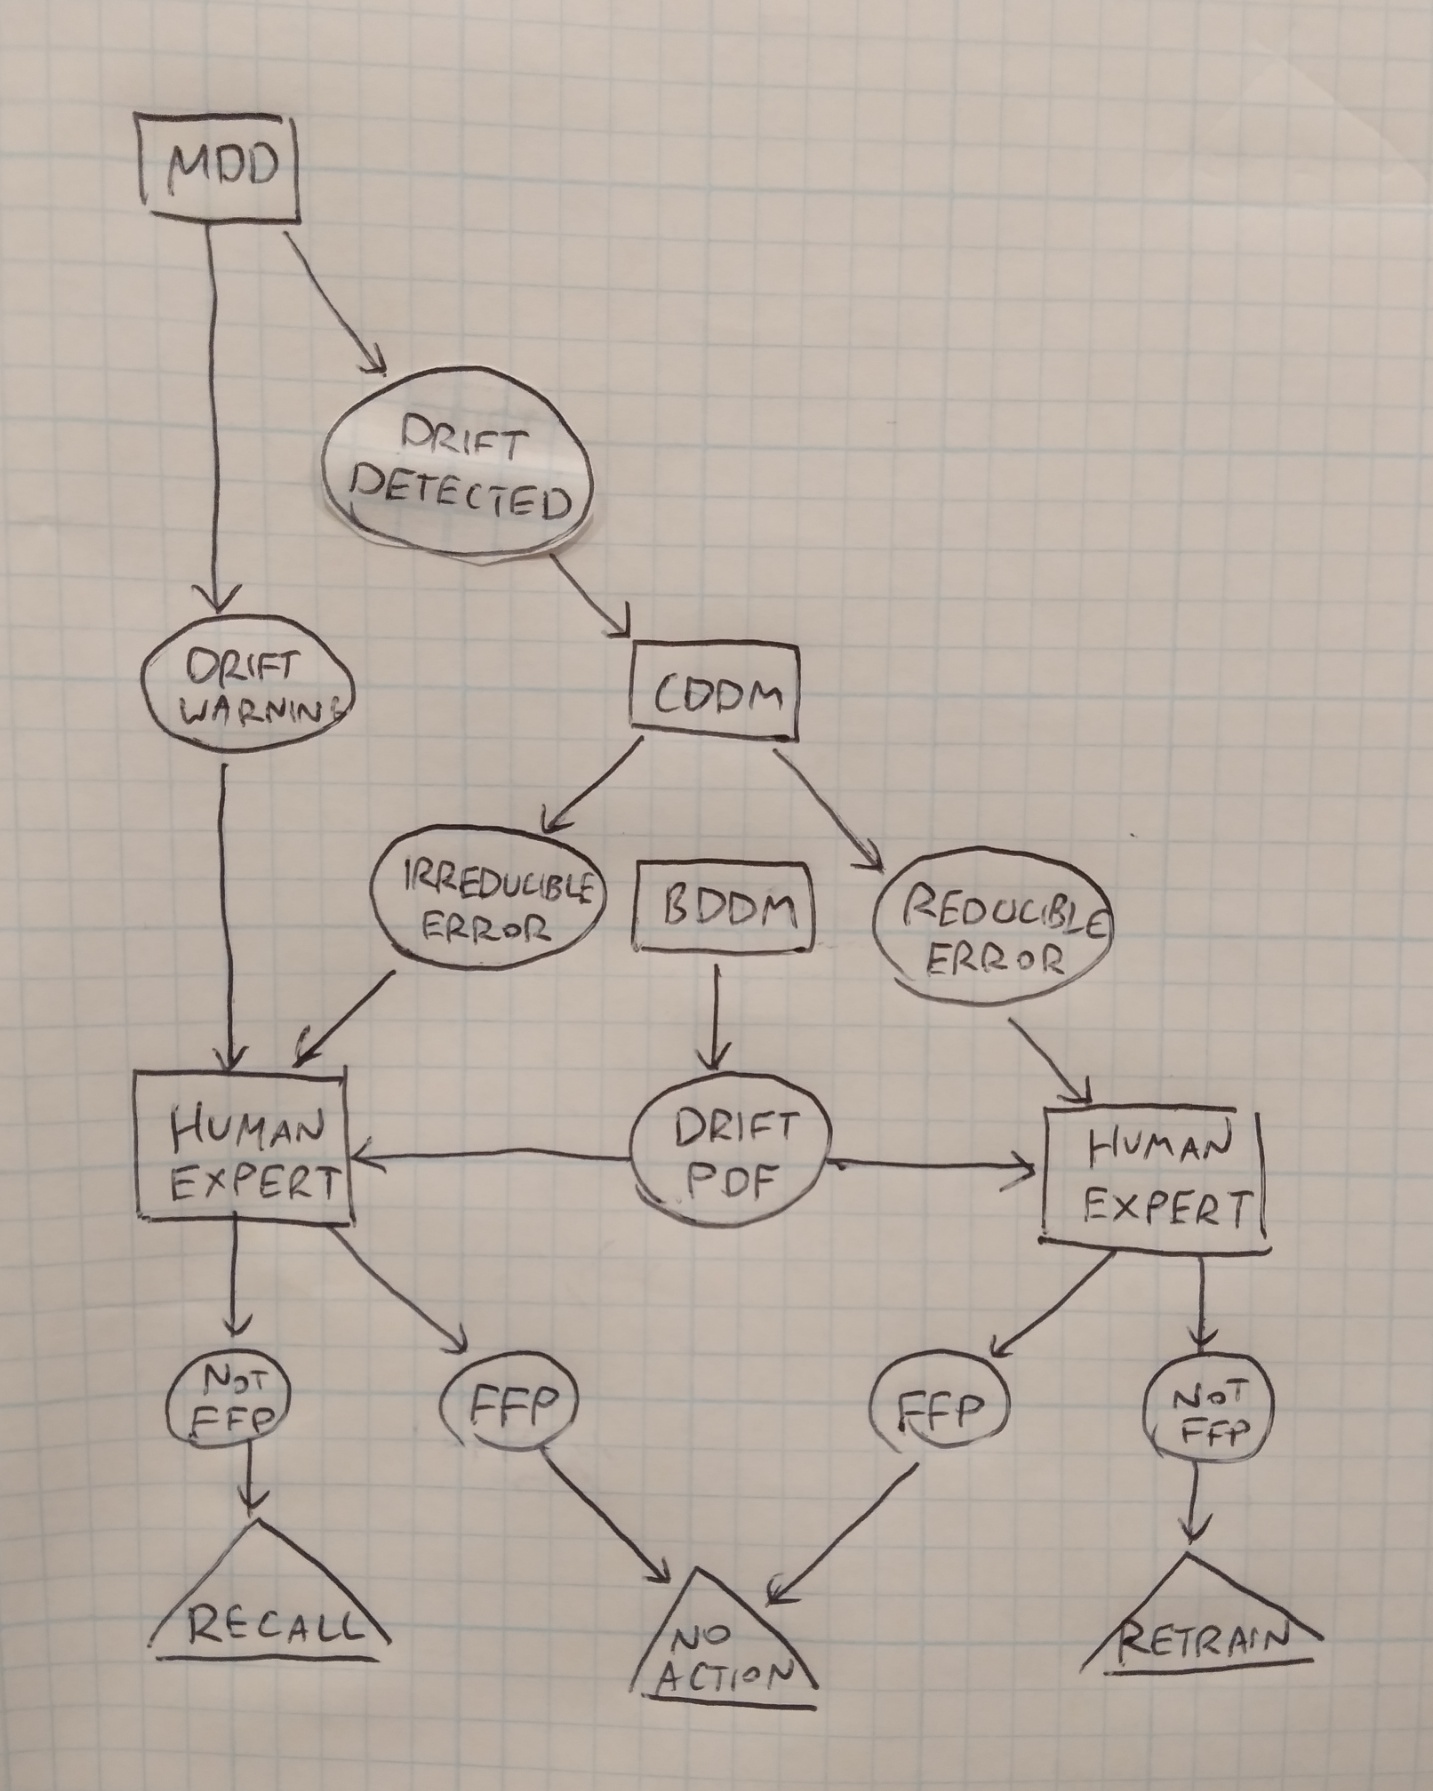 MDD
DRIFT
DETECTED
DRIFT
WARNING
CDDM
IRREDUCIBLE
ERROR
BDDM
REDUCIBLE
ERROR
HUMAN
EXPERT
DRIFT
PDF
HUMAN
EXPERT
NOT
FFP
FFP
FFP
NOT
FFP
RECALL
NO
ACTION
RETRAIN